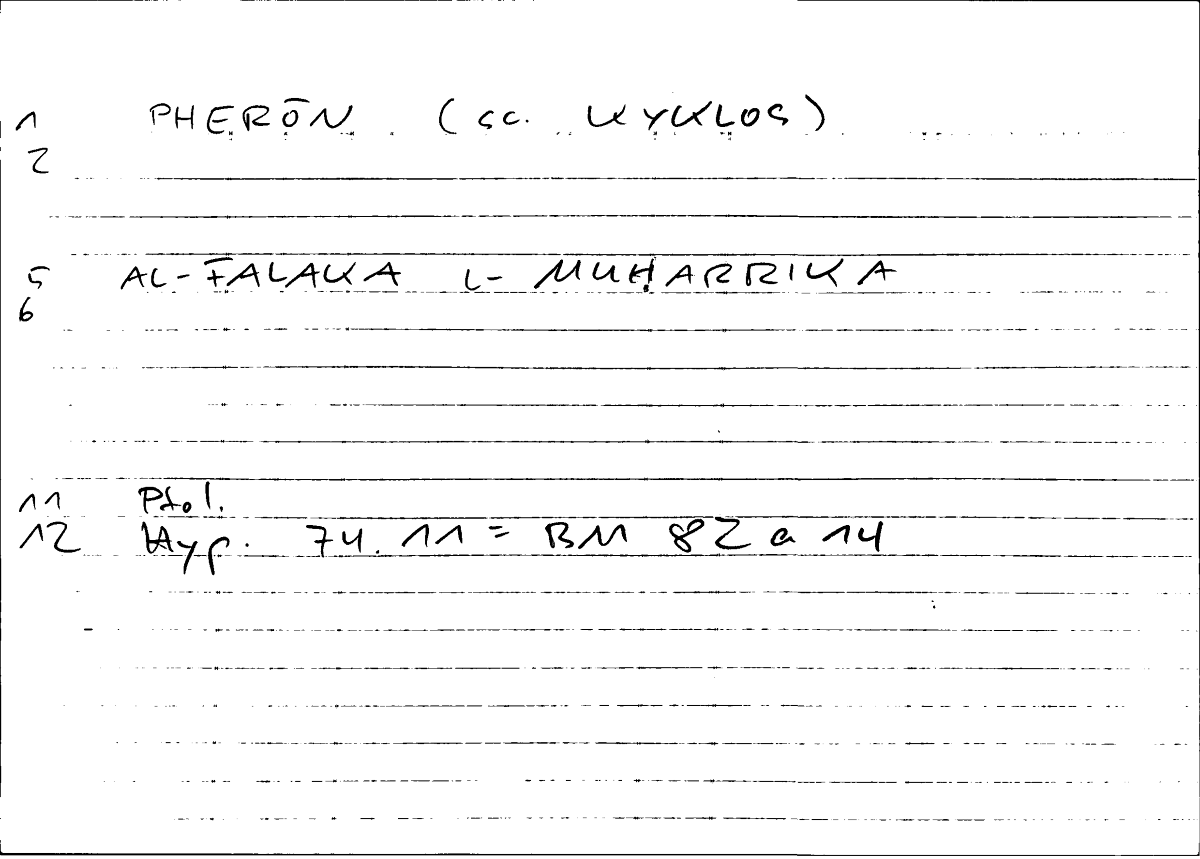 1 PHERŌN (sc. KYKLOS)
2
5 AL-FALAKA L-MUḤARRIKA
6
11 Ptol.
12 Hyp. 74.11 = BM 82 a 14